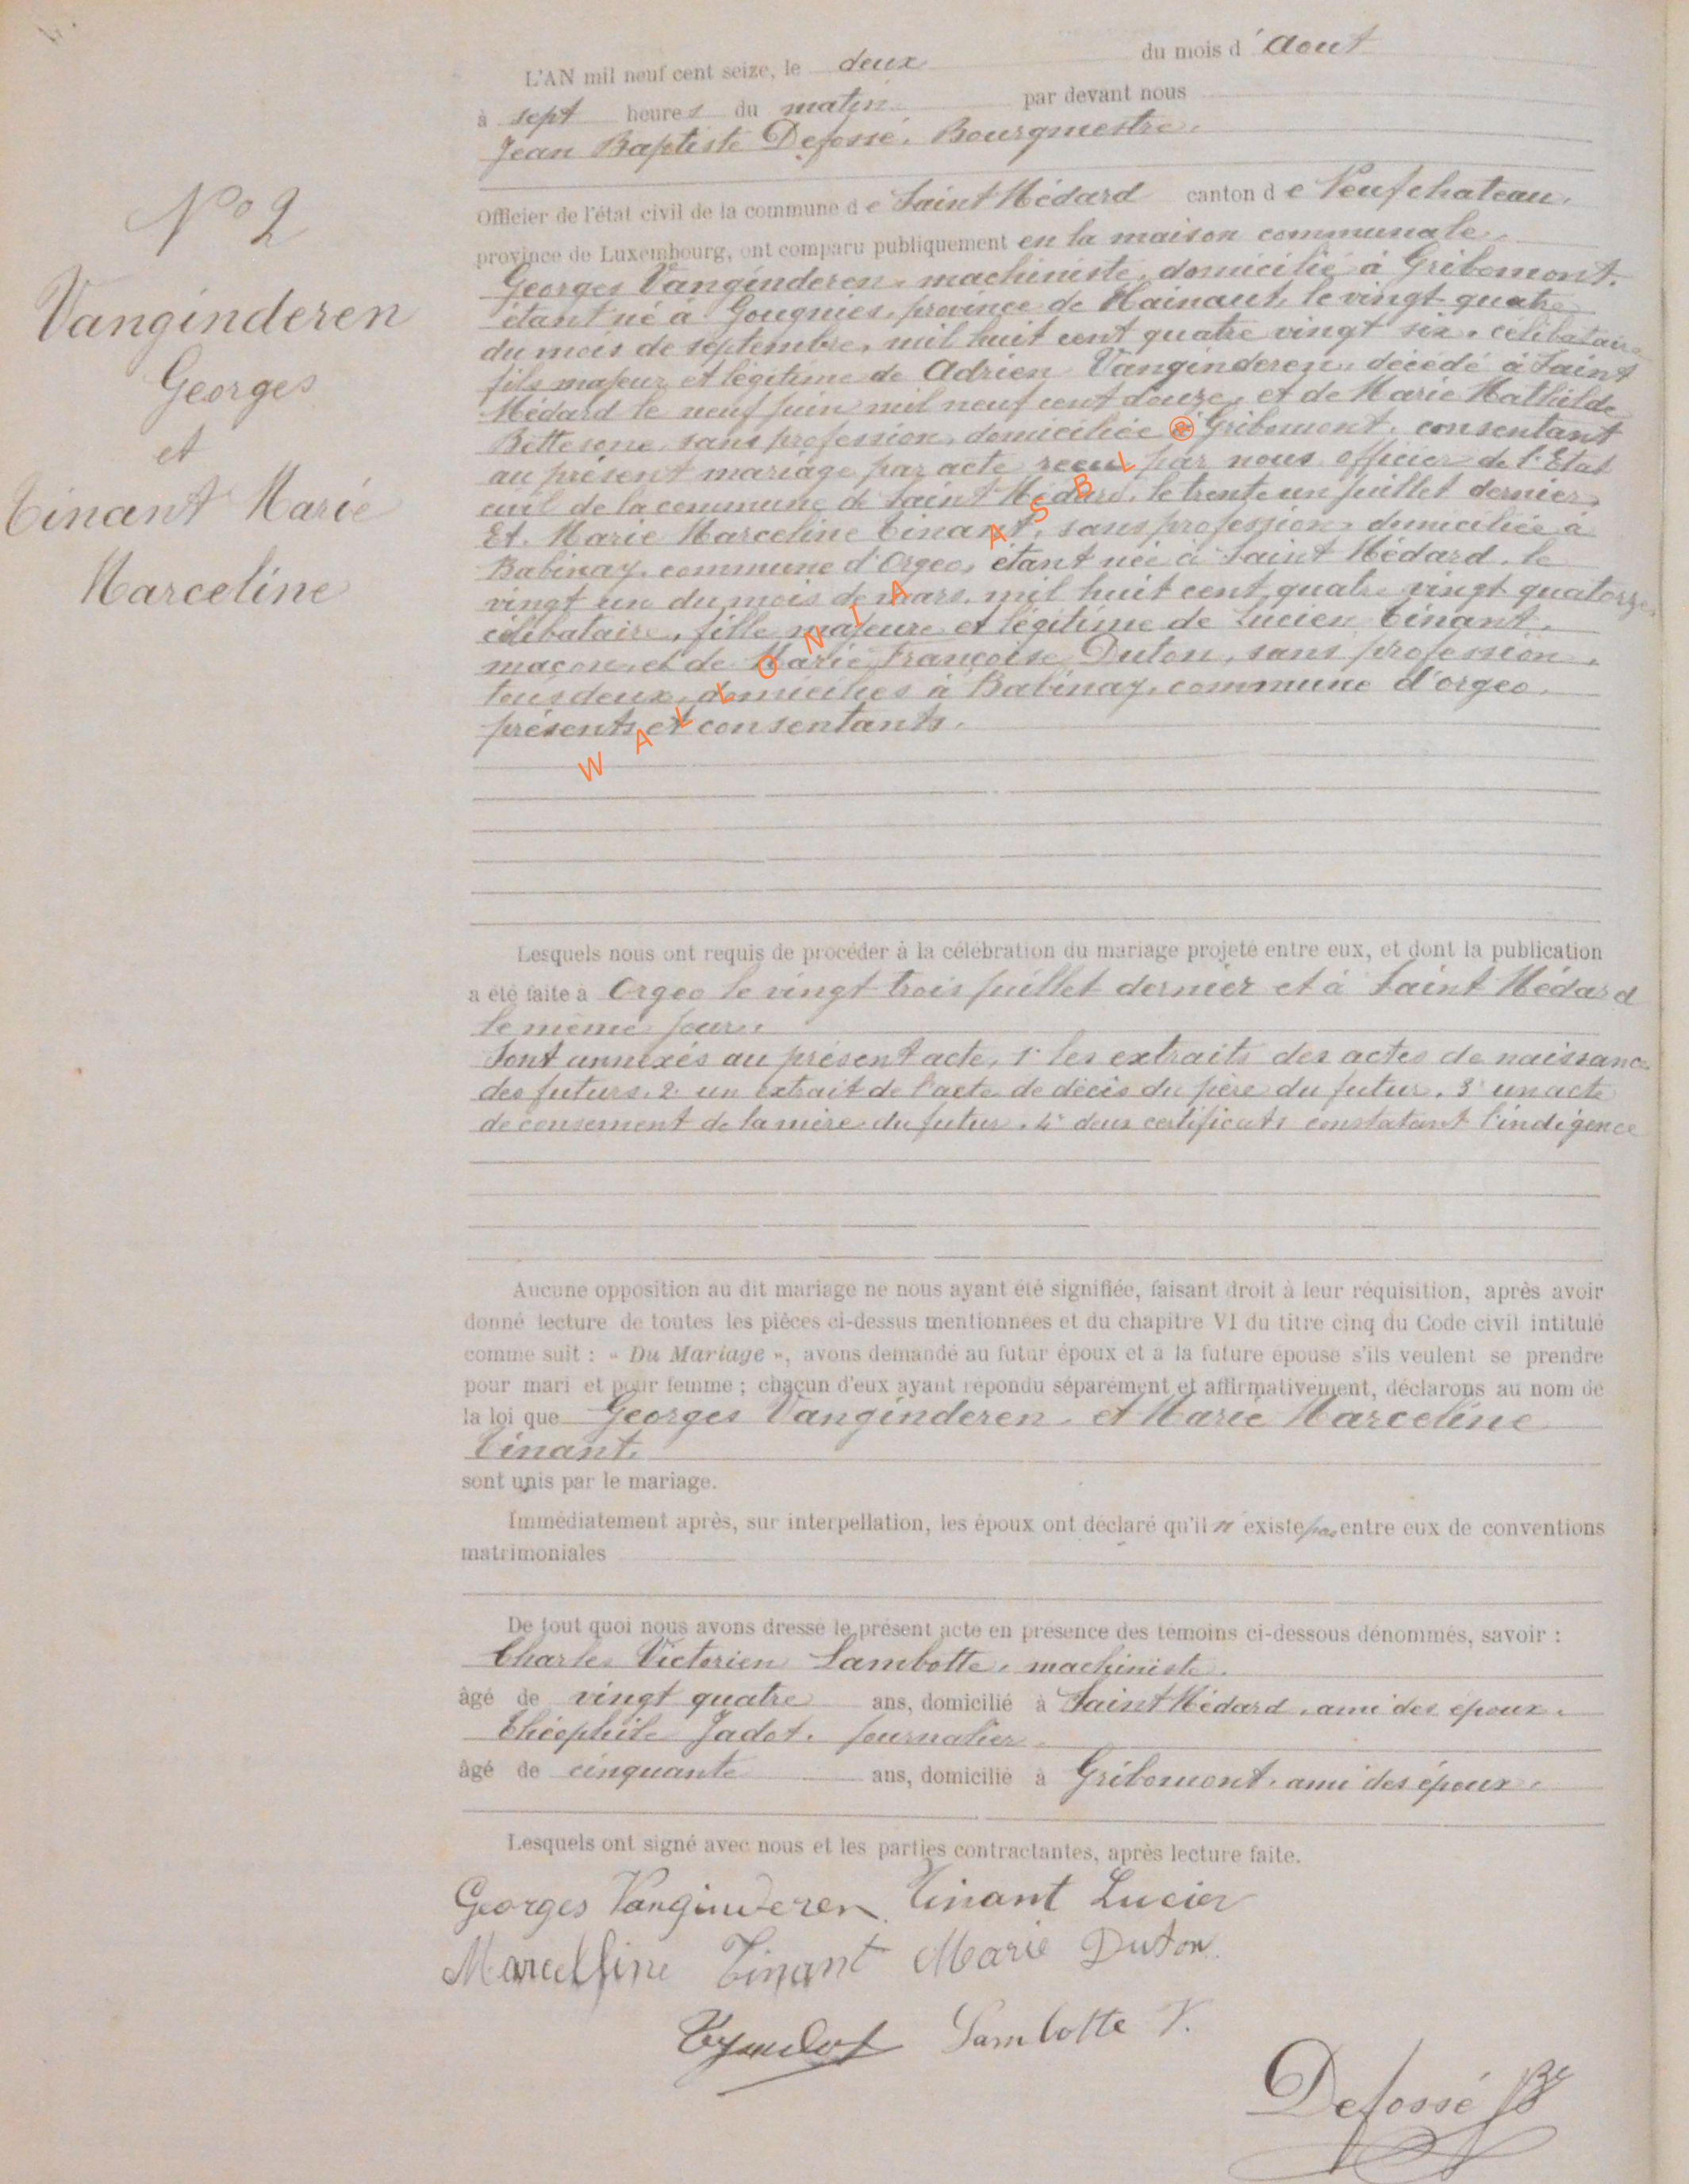 N° 2
Vanginderen
Georges
et
Tinant Marie
Marceline
L'AN mil neuf cent seize, le deux du mois d'Aout
à sept heures du matin par devant nous
Jean Baptiste Defossé, Bourgmestre,
Officier de l'état civil de la commune de Saint Médard canton de Neufchateau,
province de Luxembourg, ont comparu publiquement en la maison communale,
Georges Vanginderen, machiniste, domicilié à Gribomont,
étant né à Gougnies, province de Hainaut, le vingt quatre
du mois de septembre, mil huit cent quatre vingt six, célibataire
fils majeur et légitime de Adrien Vanginderen, décédé à Saint
Médard le neuf juin mil neuf cent douze, et de Marie Mathilde
sans profession, domiciliée à Gribomont, consentant
au présent mariage par acte recu par nous officier de l'Etat
civil de la commune de Saint Médard, le trente un juillet dernier,
Et Marie Marceline Tinant, sans profession, domiciliée à
Babinay, commune d'Orgeo, étant née à Saint Médard, le
vingt un du mois de mars, mil huit cent quatre vingt quatorze,
célibataire, fille majeure et légitime de Lucien Tinant,
maçon, et de Marie Françoise Duton, sans profession,
tous deux domiciliés à Babinay, commune d'orgeo,
présents et consentants.
WALLONIA ASBL ®
Lesquels nous ont requis de procéder à la célébration du mariage projeté entre eux, et dont la publication
a été faite à Orgeo le vingt trois juillet dernier et à Saint Médard
le même jour.
Sont annexés au présent acte, 1° les extraits des actes de naissance
des futurs, 2° un extrait de l'acte de décès du père du futur, 3° un acte
de consement de la mère du futur, 4° deux certificats constatant l'indigence
Aucune opposition au dit mariage ne nous ayant été signifiée, faisant droit à leur réquisition, après avoir
donné lecture de toutes les pièces ci-dessus mentionnées et du chapitre VI du titre cinq du Code civil intitulé
comme suit : « Du Mariage », avons demandé au futur époux et à la future épouse s'ils veulent se prendre
pour mari et pour femme ; chacun d'eux ayant répondu séparément et affirmativement, déclarons au nom de
la loi que Georges Vanginderen et Marie Marceline
Tinant,
sont unis par le mariage.
Immédiatement après, sur interpellation, les époux ont déclaré qu'il n'existe pas entre eux de conventions
matrimoniales
De tout quoi nous avons dressé le présent acte en présence des témoins ci-dessous dénommés, savoir :
Charles Victorien Lambotte, machiniste,
âgé de vingt quatre ans, domicilié à Saint Médard, ami des époux,
Théophile Jadot, journalier
âgé de cinquante ans, domicilié à Gribomont, ami des époux.
Lesquels ont signé avec nous et les parties contractantes, après lecture faite.
Georges Vanginderen Tinant Lucien
Marcelline Tinant Marie Duton
Lambotte V.
Defossé